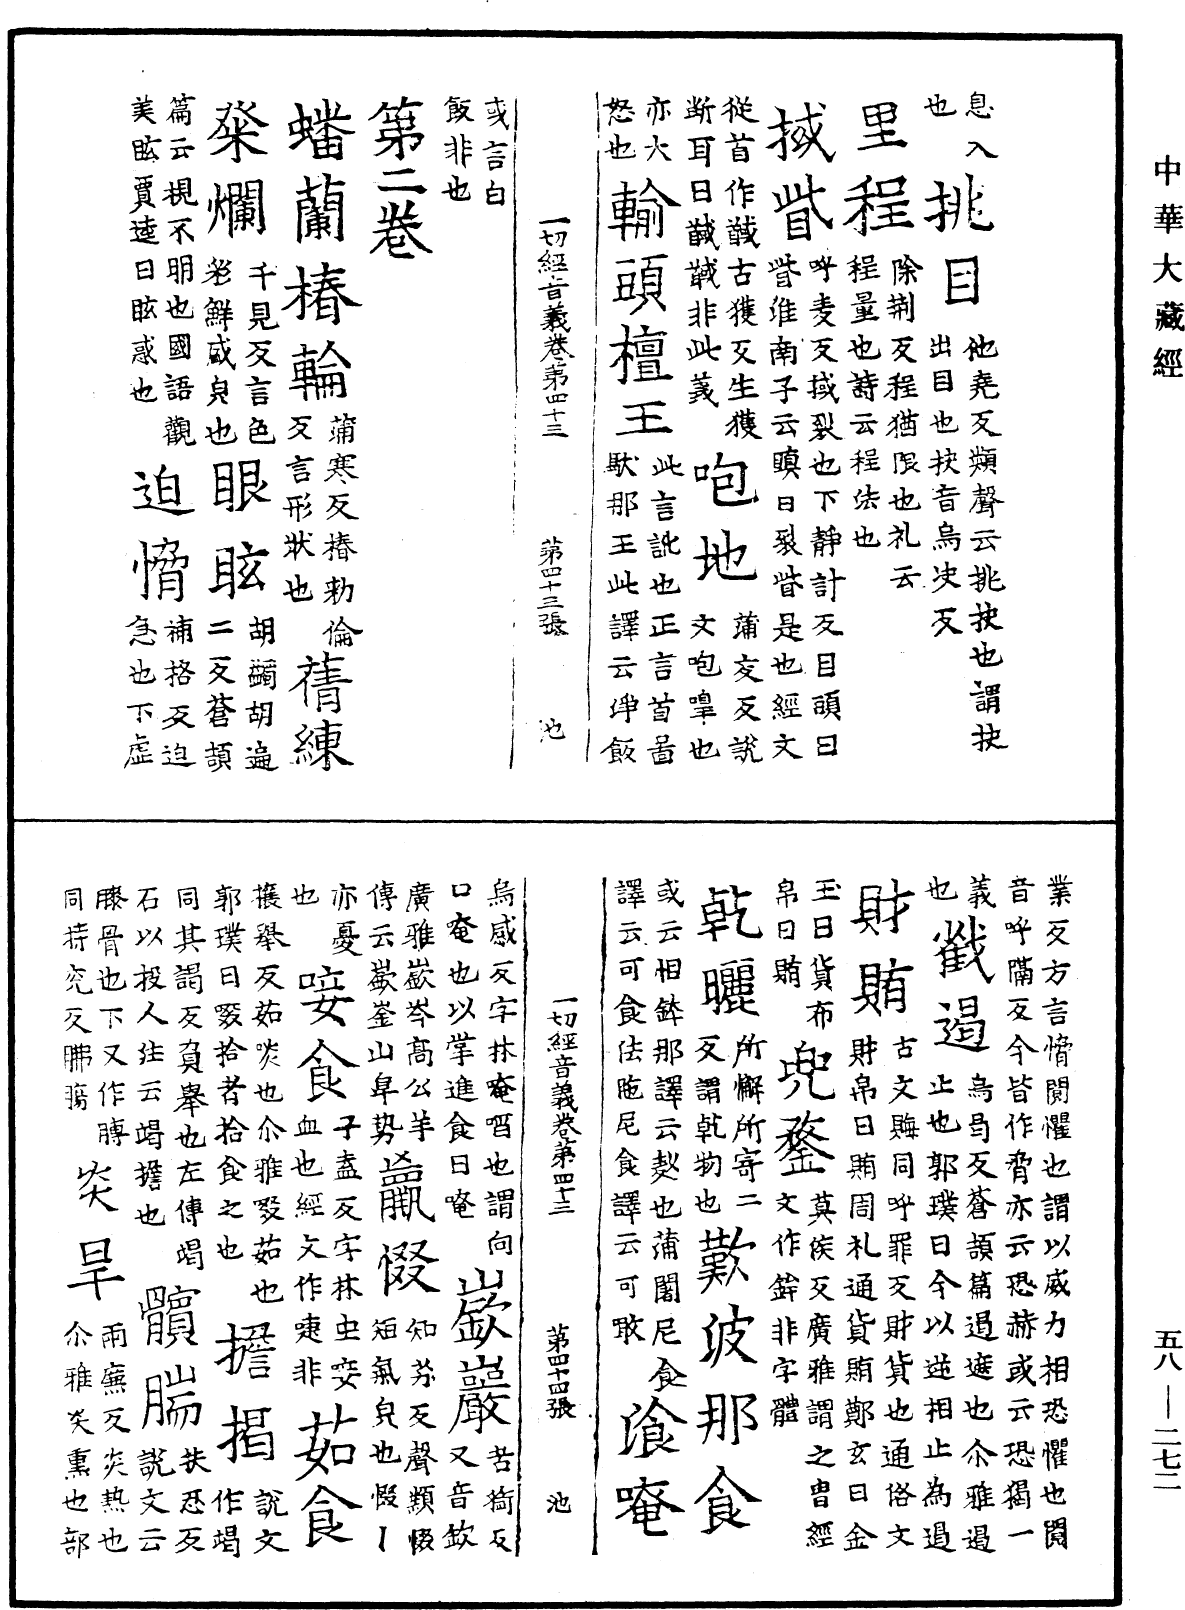 中華大藏經
息入挑目他堯反顙聲云挑抉也謂抉
也出目也抉音烏決反
里程除荆反程猶限也礼云
程量也詩云程法也
掝眥呼麦反掝裂也下静計反目頭曰
眥淮南子云瞋目裂眥是也經文
從首作馘古獲反生獲
断耳曰馘馘非此義
咆地蒲交反說
文咆嘷也
亦大
怒也
輸頭檀王此言訛也正言首啚
馱那王此譯云净飯
一切經音義卷第四十三 第四十三張 池
或言白
飯非也
第二卷
蟠蘭椿輪蒲寒反椿勑倫
反言形狀也
蒨練千見反言色
彩鮮盛皃也
粲爛
眼眩胡蠲胡遍
二反蒼頡
篇云視不明也國語觀
美眩賈逵曰眩惑也
迫愶補格反迫
急也下虛
業反方言愶閱懼也謂以威力相恐懼也閱
音呼隔反今皆作脅亦云恐赫或云恐猲一
義
也
戳遏烏曷反蒼頡篇遏遮也尒雅遏
止也郭璞曰今以逆相止為遏
財賄古文賄同呼罪反財貨也通俗文
財帛曰賄周礼通貨賄鄭玄曰金
玉曰貨布
帛曰賄
兜鍪莫侯反廣雅謂之冑經
文作鉾非字體
乾曬所懈所寄二
反謂乾物也
歎波那食
或云相鉢那譯云麨也蒲闍尼食
譯云可食佉陁尼食譯云可噉
飡唵
一切經音義卷第四十三 第四十四張 池
烏感反字林唵啗也謂向
口唵也以掌進食曰唵
嶔巖苦銜反
又音欽
廣雅嶔岑高公羊
傳云嶔崟山阜势
羸惙知芬反聲類惙
短氣皃也惙丨
亦憂
也
唼食子盍反字林虫唼
血也經文作啑非
茹食說文
攘舉反茹啖也尒雅啜茹也
郭璞曰啜拾者拾食之也
擔揭作竭
同其謁反負舉也左傳竭
石以投人注云竭擔也
髖腨扶忍反
說文云
膝骨也下又作膞
同持兖反腓膓
炎旱雨廉反炎热也
尒雅炎熏也部
五八—二七二